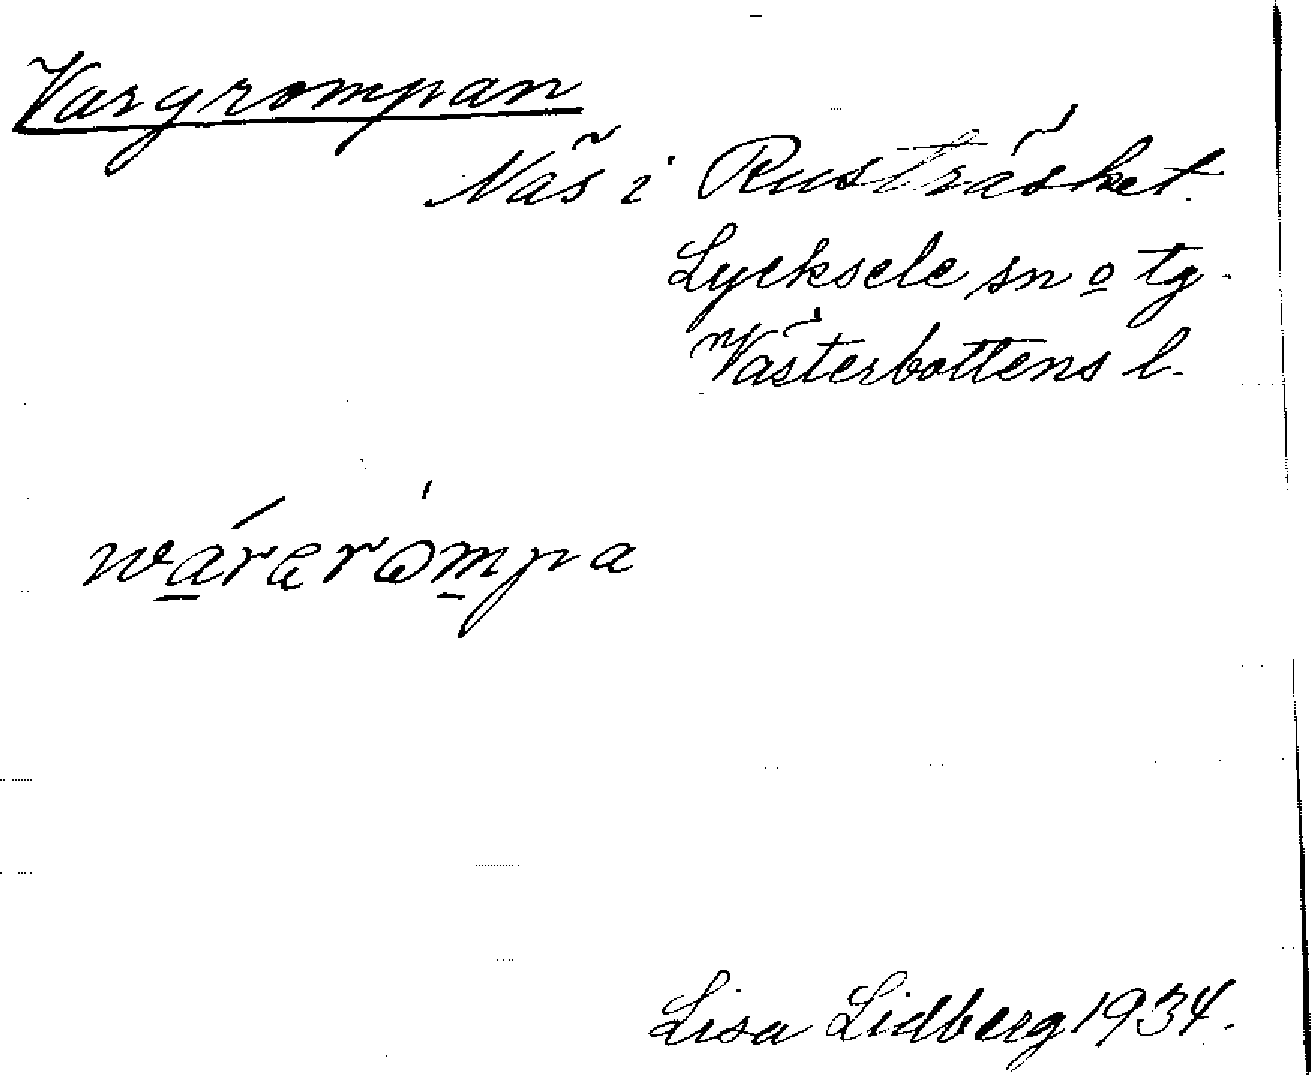 Vargrompan
Näs i Rusträsket.
Lycksele sn o tg.
Västerbottens l.
Lisa Lidberg 1934.